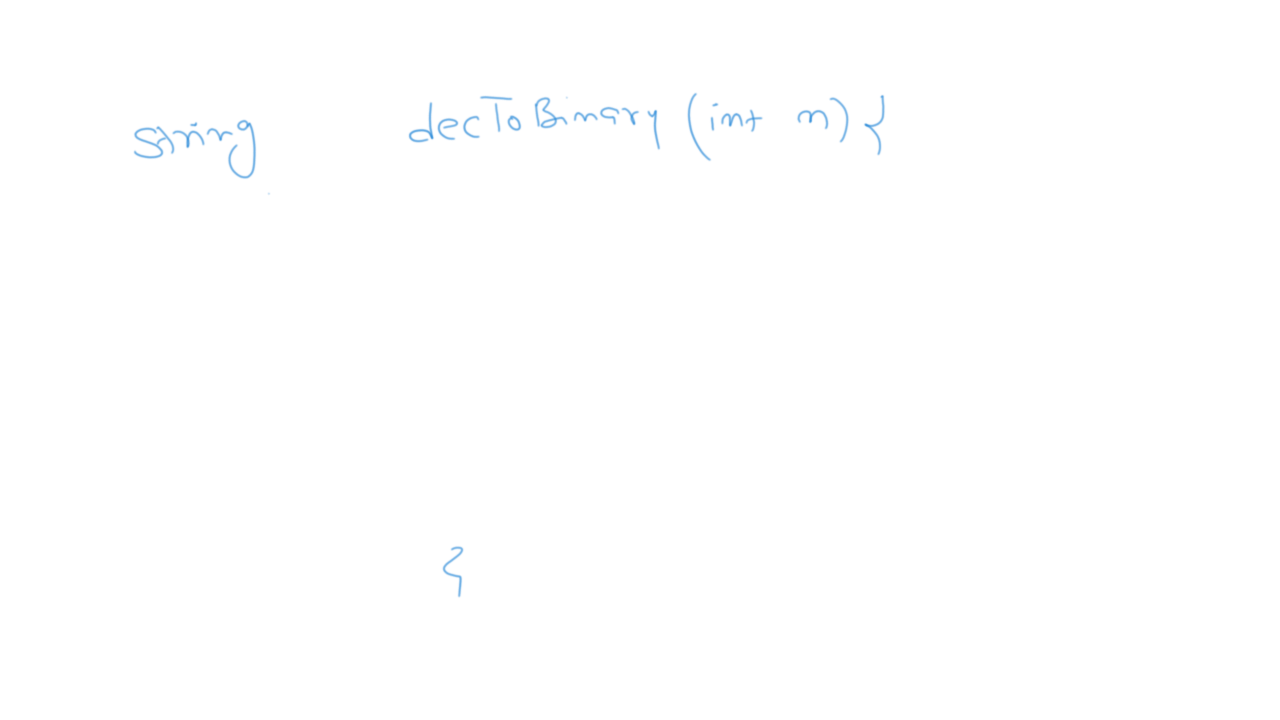 string decToBinary (int n) {
{